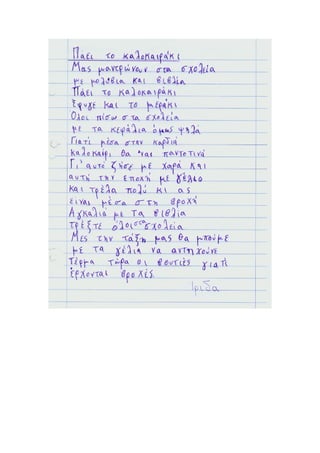 Πάει το καλοκαιράκι
Μας μαντρώνουν στα σχολεία
με μολύβια και βιβλία
Πάει το καλοκαιράκι
Έφυγε και το μεράκι
Όλοι πίσω στα σχολεία
με τα κεφάλια όμως ψηλά
Γιατί μέσα στην καρδιά
καλοκαίρι θα 'ναι παντοτινά
Γι' αυτό ζήσε με χαρά και
αυτή την εποχή με γέλιο
και τρέλα πολύ κι ας
είναι μέσα στη βροχή
Αγκαλιά με τα βιβλία
τρέξτε όλοι στα σχολεία
Μες την τάξη μας θα μπούμε
με τα γέλια να αντηχούνε
Τέρμα τώρα οι βουτιές γιατί
έρχονται βροχές
Ίριδα